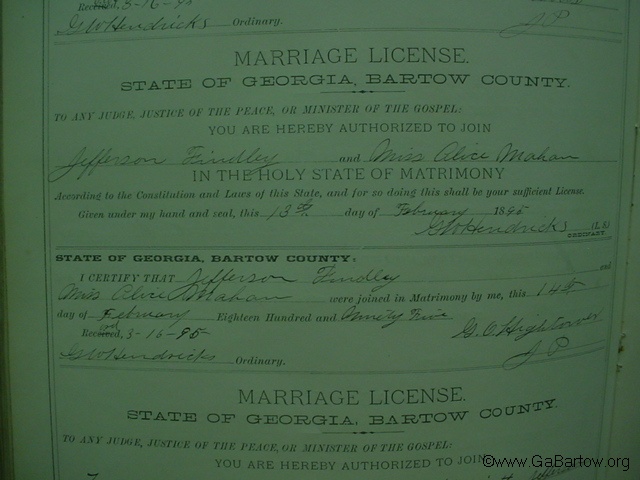 Received, 3-16-95
GW Hendricks Ordinary. J P
MARRIAGE LICENSE.
STATE OF GEORGIA, BARTOW COUNTY.
TO ANY JUDGE, JUSTICE OF THE PEACE, OR MINISTER OF THE GOSPEL:
YOU ARE HEREBY AUTHORIZED TO JOIN
Jefferson Findley and Miss Alice Mahan
IN THE HOLY STATE OF MATRIMONY
According to the Constitution and Laws of this State, and for so doing this shall be your sufficient License.
Given under my hand and seal, this 13th day of February 1895
GW Hendricks (L S)
ORDINARY.
STATE OF GEORGIA, BARTOW COUNTY:
I CERTIFY THAT Jefferson Findley and
Miss Alice Mahan were joined in Matrimony by me, this 14th
day of February Eighteen Hundred and Ninety Five
Recorded, 3-16-95 G. C. Hightower
GW Hendricks Ordinary. J P
MARRIAGE LICENSE.
STATE OF GEORGIA, BARTOW COUNTY.
TO ANY JUDGE, JUSTICE OF THE PEACE, OR MINISTER OF THE GOSPEL:
YOU ARE HEREBY AUTHORIZED TO JOIN
©www.GaBartow.org